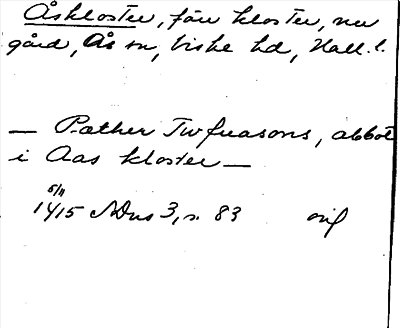 Åskloster, förr kloster, nu
gård, Ås sn, Viske hd, Hall. l.
— Pæther Twfuasons, abbot
i Aas kloster —
5/11
1415 SDns 3, s. 83 orig